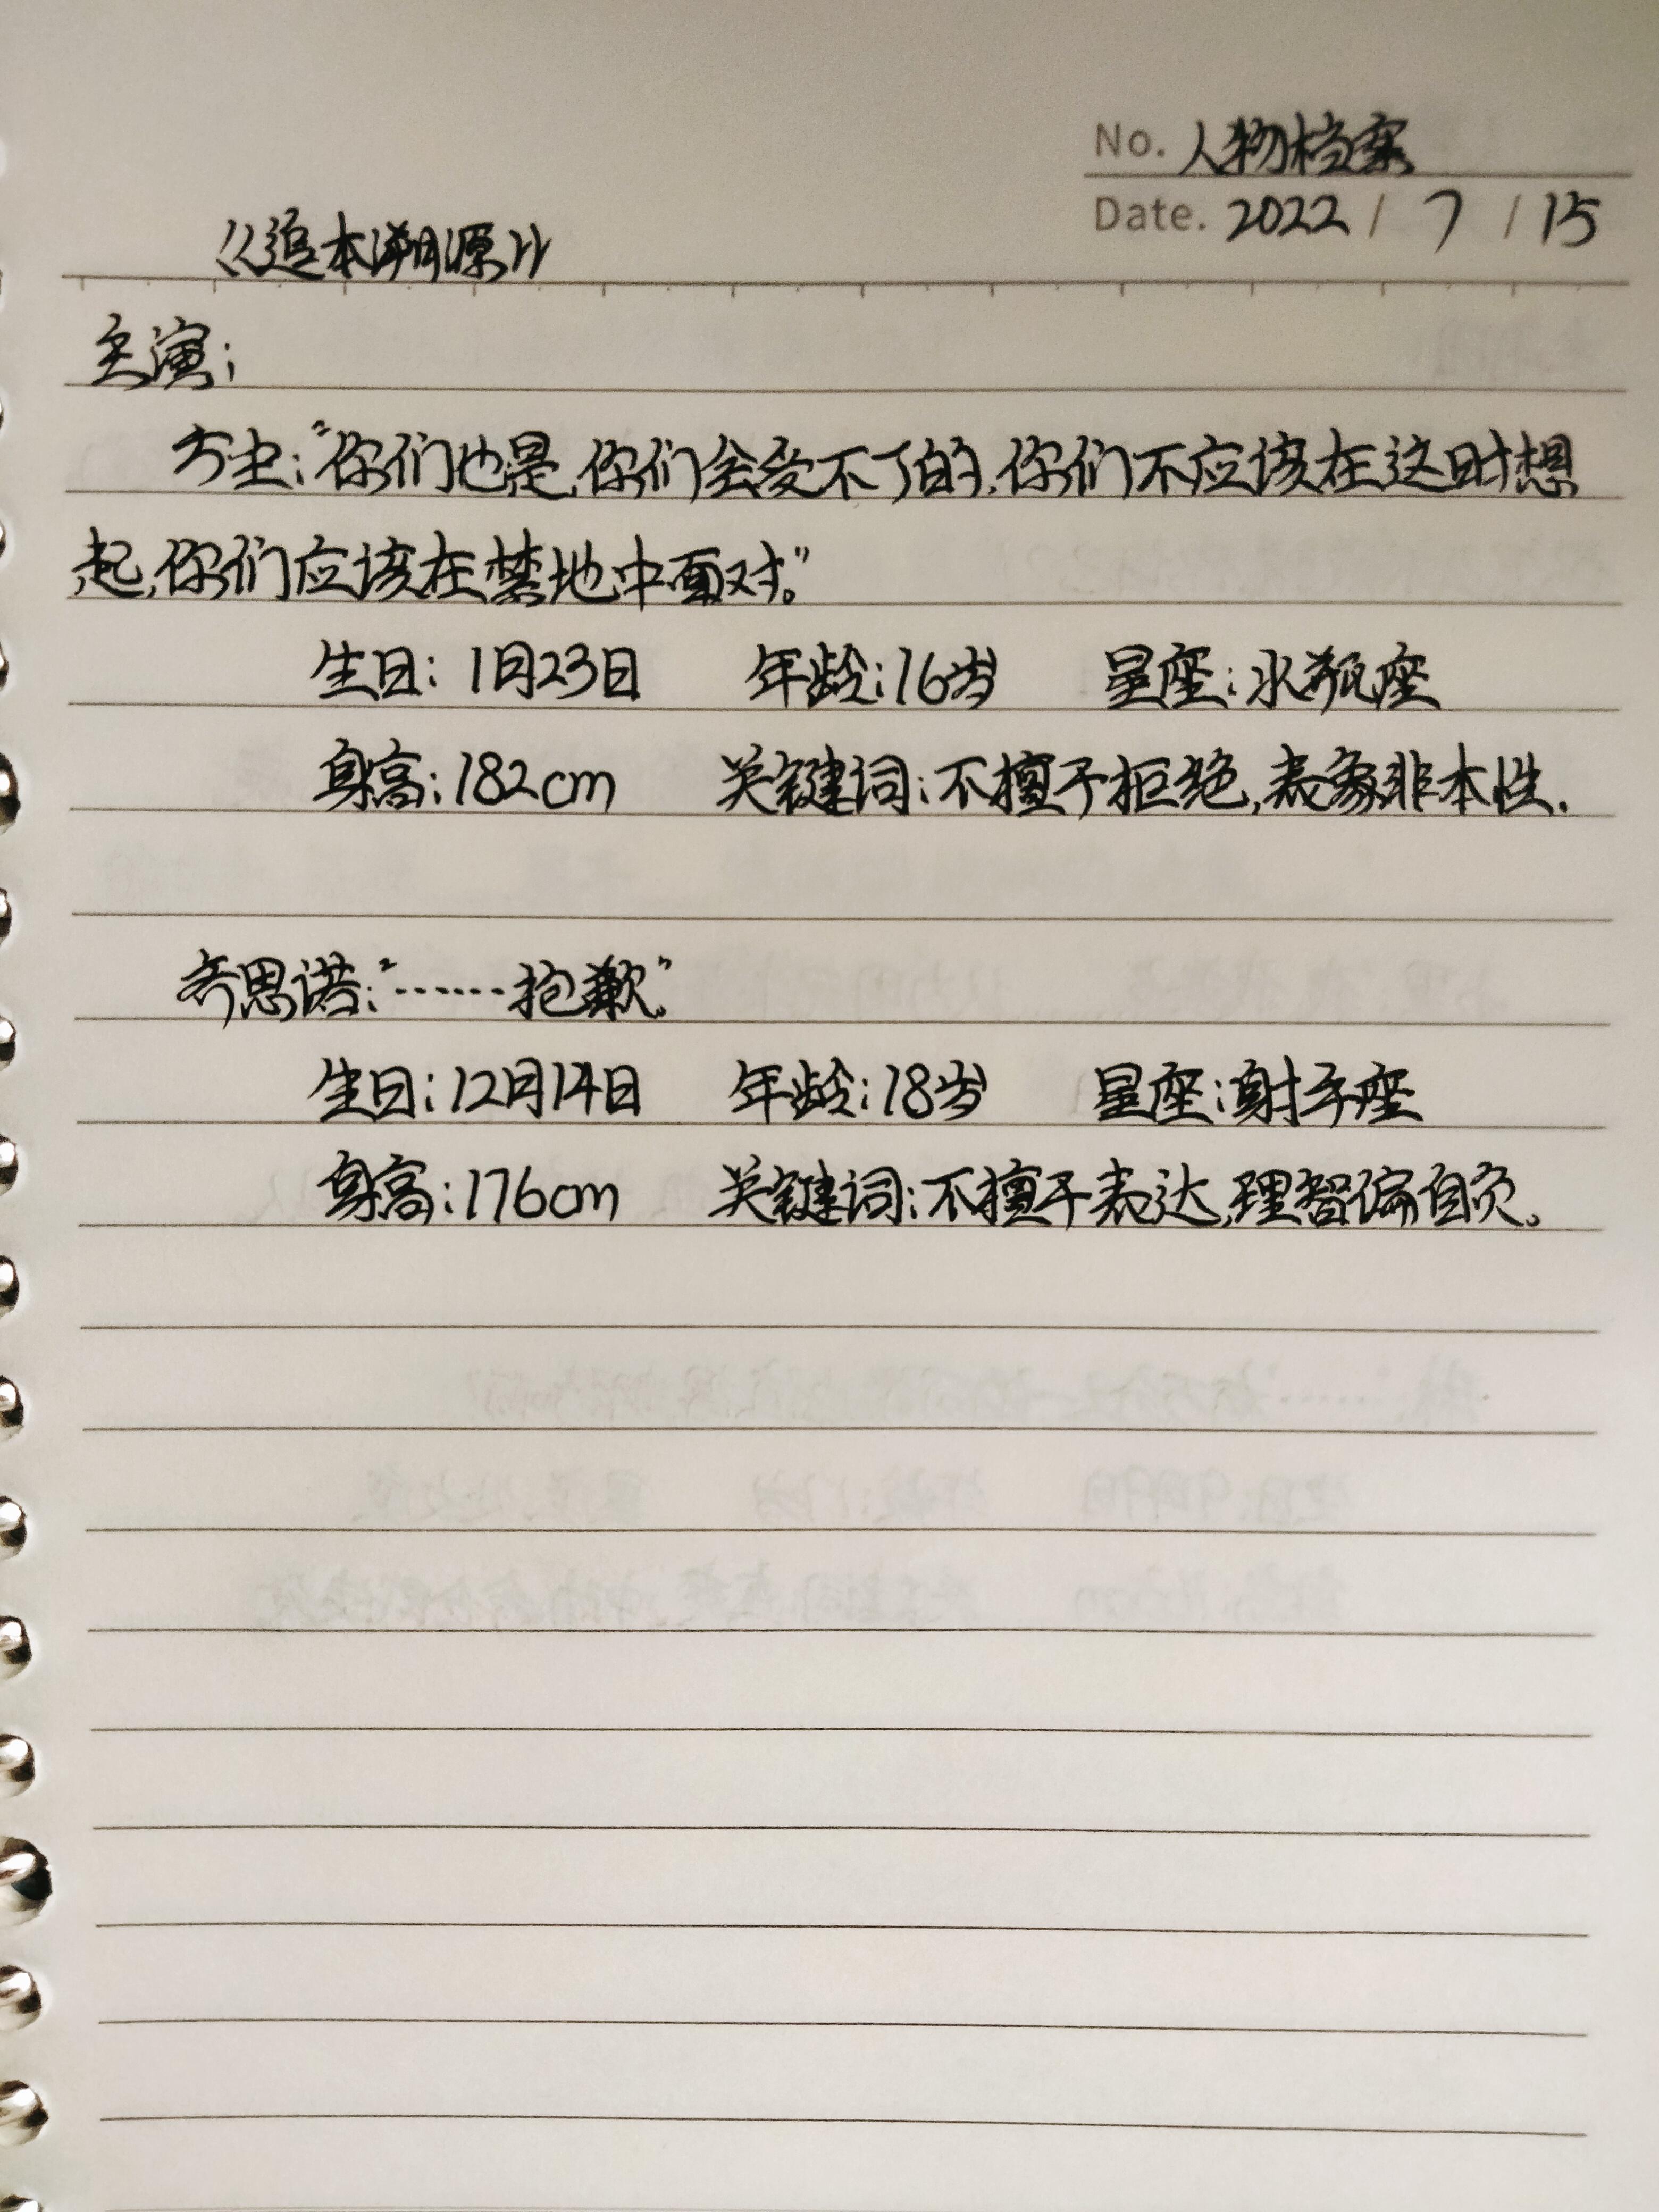 No. 人物档案
Date. 2022 / 7 / 15
《追本溯源》
主演:
方尘:“你们也是,你们会受不了的,你们不应该在这时想
起,你们应该在禁地中面对。”
生日: 1月23日 年龄:16岁 星座:水瓶座
身高:182cm 关键词:不擅于拒绝,表象非本性.
奇思诺:“……抱歉。”
生日:12月14日 年龄:18岁 星座:射手座
身高:176cm 关键词:不擅于表达,理智偏自负。